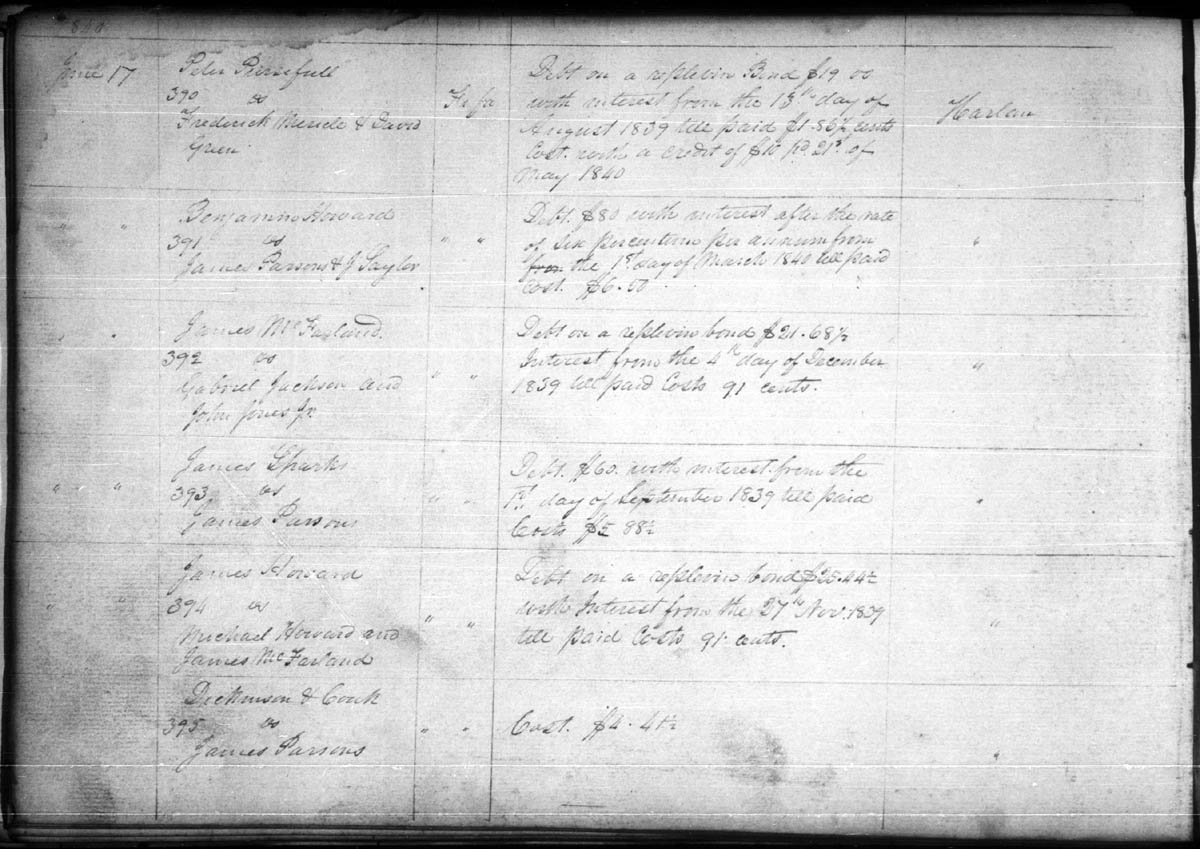 1840
June 17
Peter Persefull
390 vs
Frederick Mencle & David
Green
Fi fa
Debt on a replevin Bond $19 00
with interest from the 13th day of
August 1839 till paid $1.86½ cents
Cost. with a credit of $10 pd. 21st of
May 1840
Harlan
" "
Benjamin Howard
391 vs
James Parsons & J Saylor
" "
Debt. $80 with interest after the rate
of Six per centum per annum from
from the 1st day of March 1840 till paid
Cost. $6.50
"
" "
James McFarland.
392 vs
Gabriel Jackson and
John Jones Jr.
" "
Debt on a replevin bond $21.68½
Interest from the 4th day of December
1839 till paid Costs 91 cents.
"
" "
James Sparks
393 vs
James Parsons
" "
Debt. $60. with interest from the
1st day of September 1839 till paid
Costs $5 88½
"
" "
James Howard
394 vs
Michael Howard and
James McFarland
" "
Debt on a replevin bond $25.44½
with Interest from the 27th Nov. 1839
till paid Costs 91 cents.
"
Dickinson & Cook
395 vs
James Parsons
" "
Cost. $4.41½
"